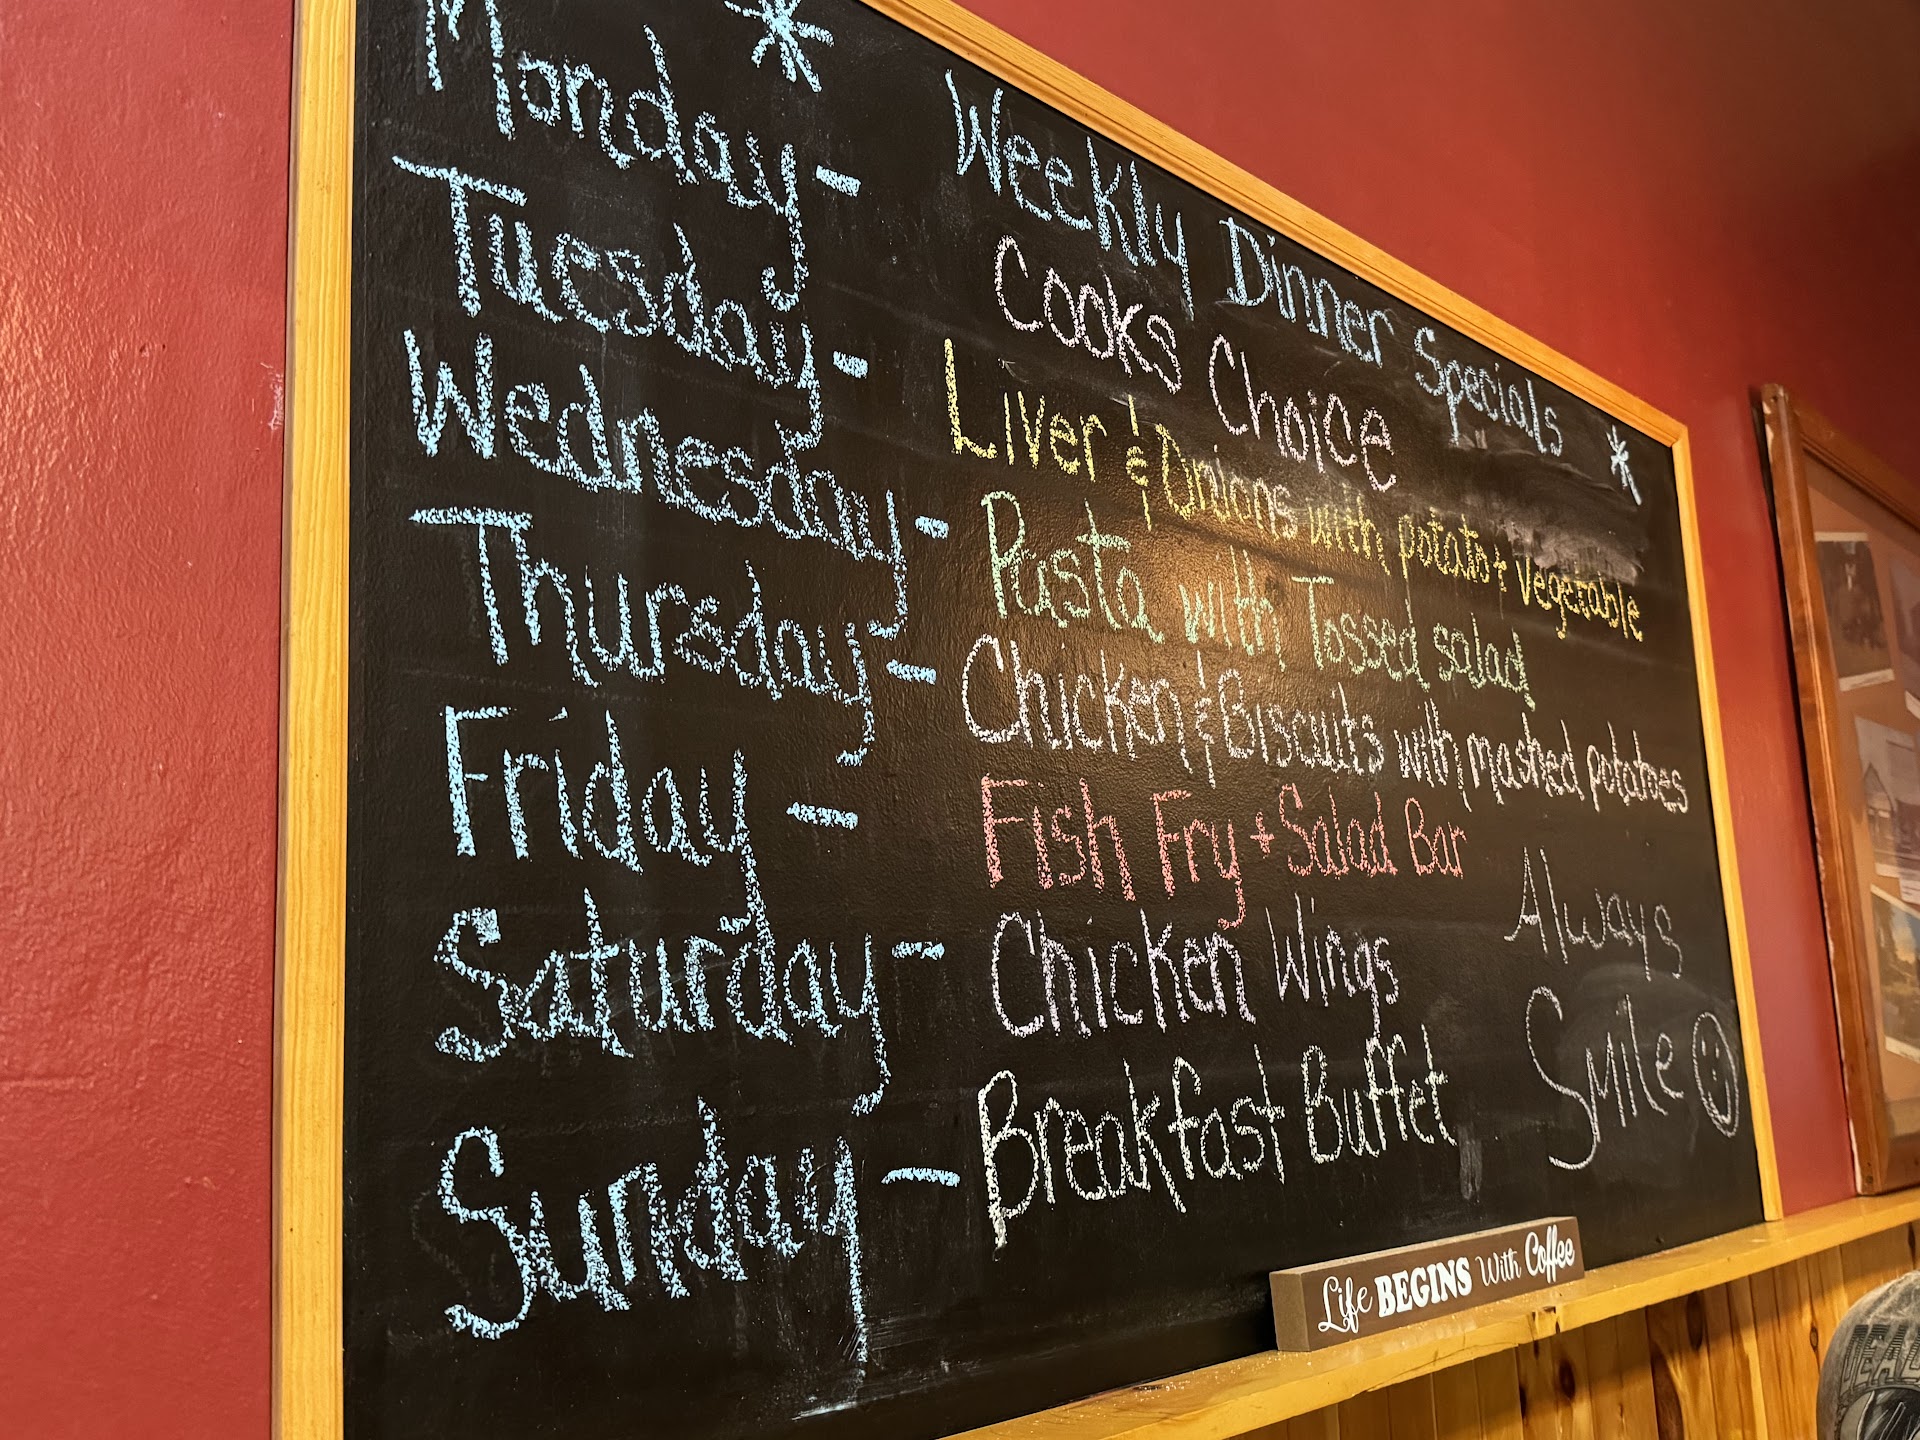 * Weekly Dinner Specials *
Monday - Cooks Choice
Tuesday - Liver & Onions with potato + Vegetable
Wednesday - Pasta with Tossed salad
Thursday - Chicken & Biscuits with mashed potatoes
Friday - Fish Fry + Salad Bar
Saturday - Chicken Wings
Sunday - Breakfast Buffet
Always
Smile
Life BEGINS With Coffee